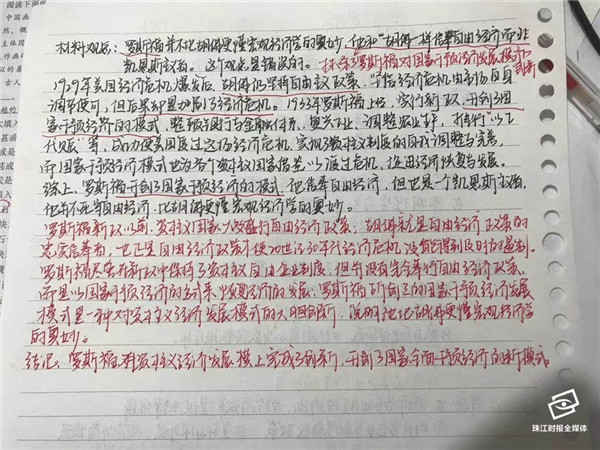 阅读下面
中国画
材料观点：罗斯福并不比胡佛更懂宏观经济学的奥妙，他和“胡佛一样信奉自由经济而非
凯恩斯主义者。这个观点是错误的。
1929年美国经济危机爆发后，胡佛仍坚持自由主义政策，
调节便可，但后果却是加剧了经济危机。1933年罗斯福上台，实行新政，开创了国
家干预经济的模式，整顿银行与金融体系，复兴工业、调整农业，推行“以工
代赈”等，成功使美国度过了经济危机，实现资本主义制度的自我调整与完善，
而国家干预经济模式也为各个资本主义国家借鉴以度过危机，促进经济恢复与发展。
综上，罗斯福开创国家干预经济的模式，他信奉自由经济，但也是一个凯恩斯主义者，
他并不完全自由经济，比胡佛更懂宏观经济学的奥妙。
罗斯福新政以前，资本主义国家大学奉行自由经济政策，胡佛就是自由经济政策的
忠实信奉者，也正是自由经济政策才使20世纪30年代经济危机没有得到及时的遏制。
罗斯福尽管在新政中保存了资本主义自由企业制度，但并没有完全奉行自由经济政策，
而是以国家干预经济的方式来恢复经济的发展；罗斯福所创立的国家干预经济发展
模式是一种对资本主义经济发展模式的大胆创新，说明他比胡佛更懂宏观经济学
的奥妙。
结论：罗斯福在资本主义经济发展模式上完成了创新，开创了国家全面干预经济的新模式
珠江时报全媒体